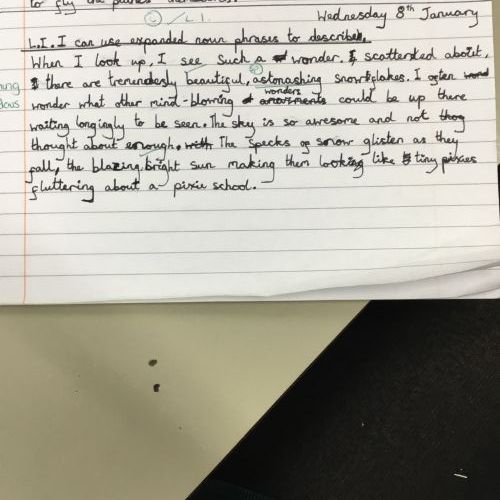 to fly the
☺ / L.I.
Wednesday 8th January
L.I. I can use expanded noun phrases to describe.
When I look up, I see such a wonder. scattersked about,
there are tremendesly beautiful, astonashing snowflakes. I often
wonders
wonder what other mind-blowing could be up there
waiting longingly to be seen. The sky is so awesome and not
thought about enough. The specks of snow glisten as they
fall, the blazing bright sun making them looking like tiny pixies
fluttering about a pixie school.